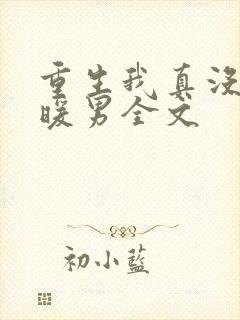 重生我真没
暖男全文
初小藍